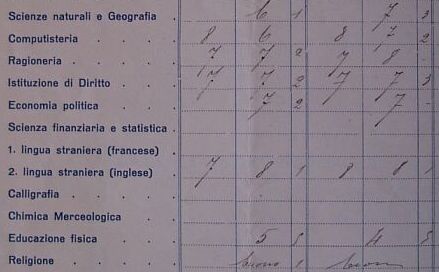 Scienze naturali e Geografia . 6 1 7 3
Computisteria . . . . 8 6 8 7 2
Ragioneria . . . . 7 7 2 7 8 -
Istituzione di Diritto . . 7 7 2 7 7 3
Economia politica . . . 7 2 7 -
Scienza finanziaria e statistica .
1. lingua straniera (francese) .
2. lingua straniera (inglese) . 7 8 1 8 8 1
Calligrafia . . . . .
Chimica Merceologica . .
Educazione fisica . . . 5 5 4 5
Religione . . . . . buono 1 buon